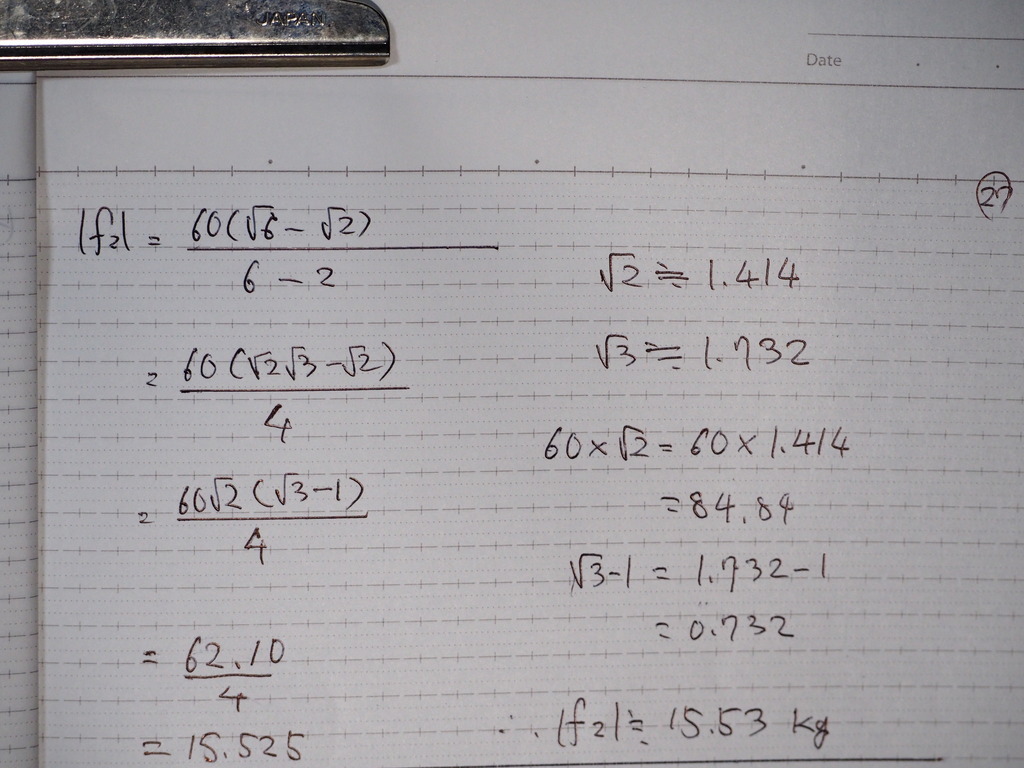 JAPAN
Date
27
|f2| = 60(√6 - √2) / 6 - 2
= 60(√2√3 - √2) / 4
= 60√2(√3 - 1) / 4
= 62.10 / 4
= 15.525
√2 ≒ 1.414
√3 ≒ 1.732
60×√2 = 60×1.414
= 84.84
√3-1 = 1.732-1
= 0.732
∴ |f2| ≒ 15.53 kg